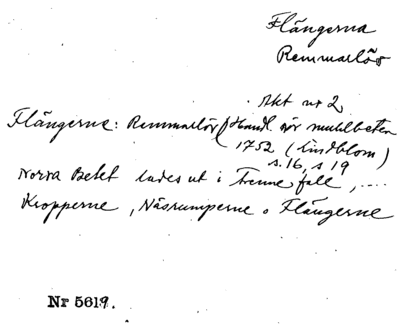 Flängerna
Remmarlöv
Akt nr 2
Flängerne: Remmarlöv (Handl. rör muhlbeten
1752 (Lindblom)
s. 16, s 19
Norra Betet lades ut i Trenne fall, ....
Kropperne, Näsrumperne o Flängerne
Nr 5619.